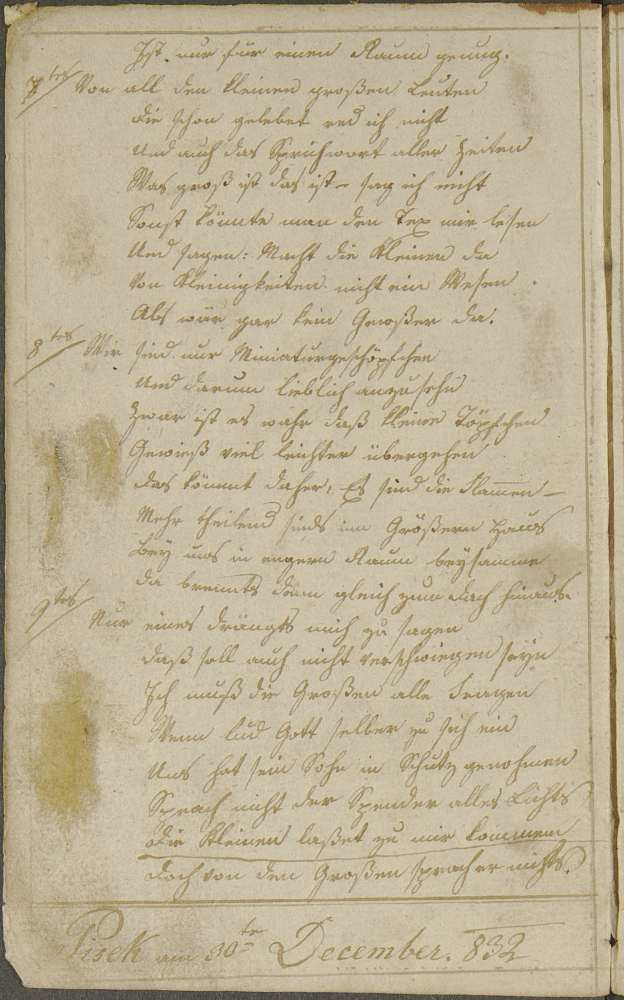 Ist nur für einen Raum genug.
7tes Von all den kleinen großen Leuten
die schon gelebet red ich nicht
Und auch das Sprichwort aller Zeiten
Was groß ist das ist – sag ich nicht
Sonst könnte man den Tex mir lesen
Und sagen: Macht die Kleinen da
Von Kleinigkeiten nicht ein Wesen
Als wär gar kein Großer da.
8tes Wir sind nur Miniaturgeschöpfchen
Und darum lieblich anzusehn
Zwar ist es wahr daß kleine Töpfchen
Gewieß viel leichter übergehen
das kömmt daher, Es sind die Flamen –
Mehr theilend sinds im Größern Haus
bey uns in engern Raum beysamme
da brennts dann gleich zum dach hinaus.
9tes Nur eines drängts mich zu sagen
daß soll auch nicht verschwiegen seyn
Ich muß die Großen alle fragen
Wenn lud Gott selber zu sich ein
Uns hat sein Sohn in Schutz genohmen
Sprach nicht der Spender alles Lichts
die Kleinen laßet zu mir kommen
doch von den Großen sprach er nichts.
Pisek am 30te December. 832